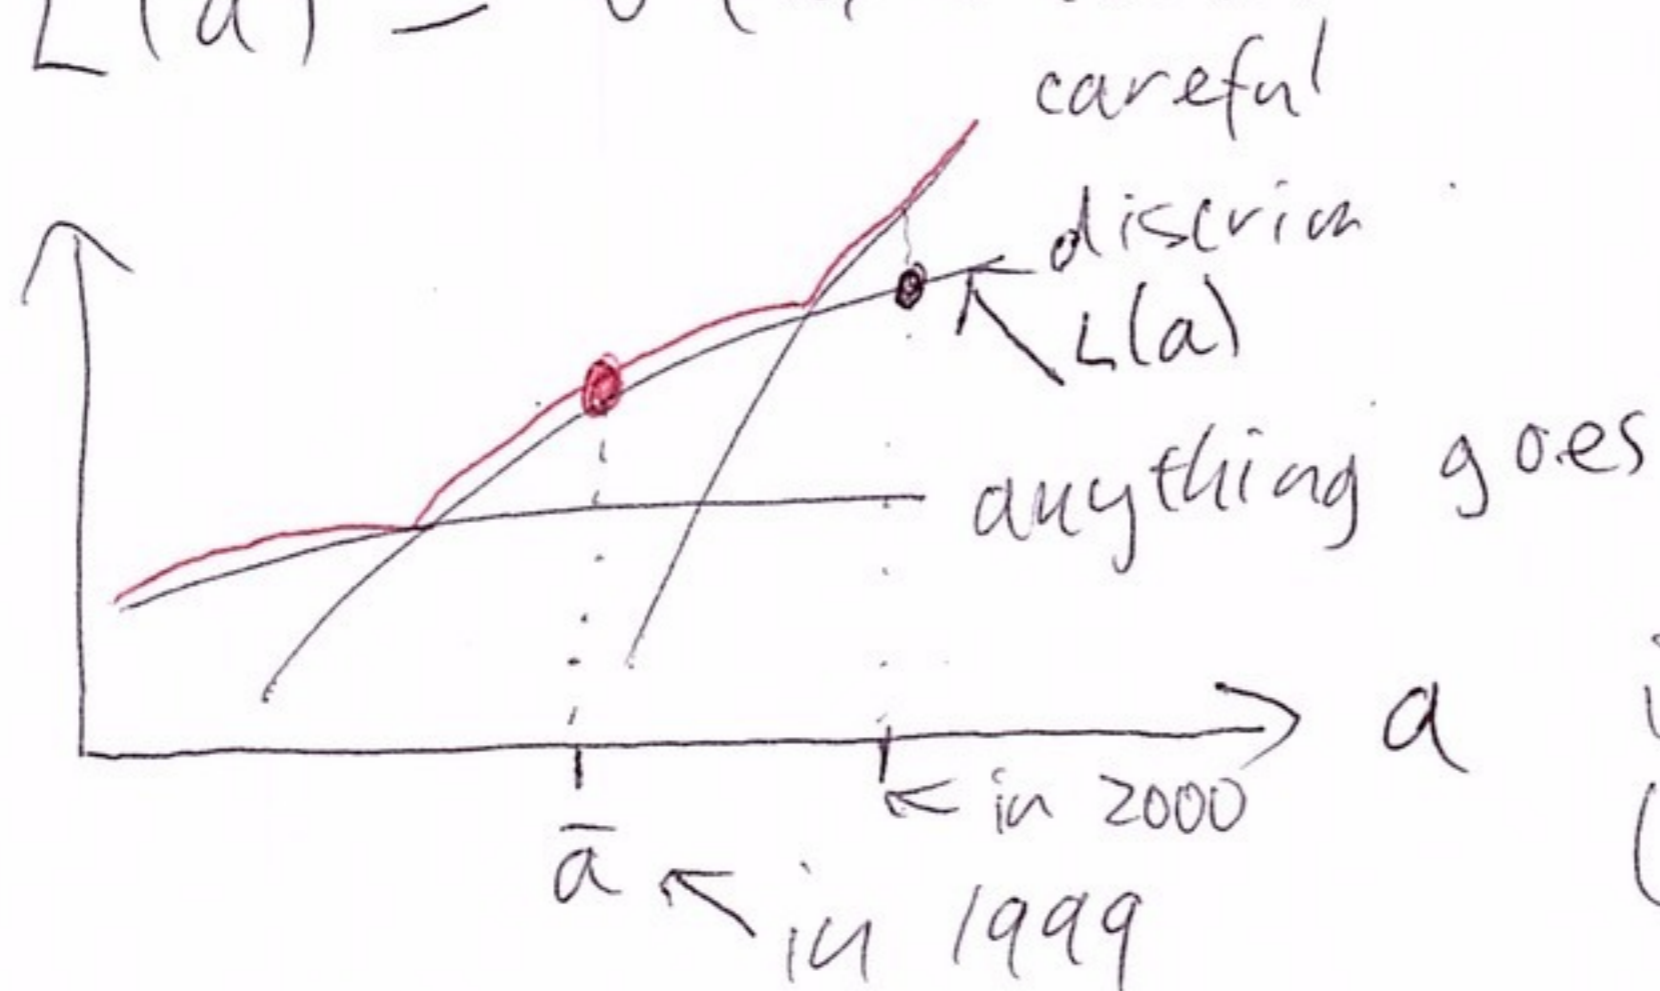 L(a) =
careful
discrim
L(a)
anything goes
a
in 2000
ā
in 1999